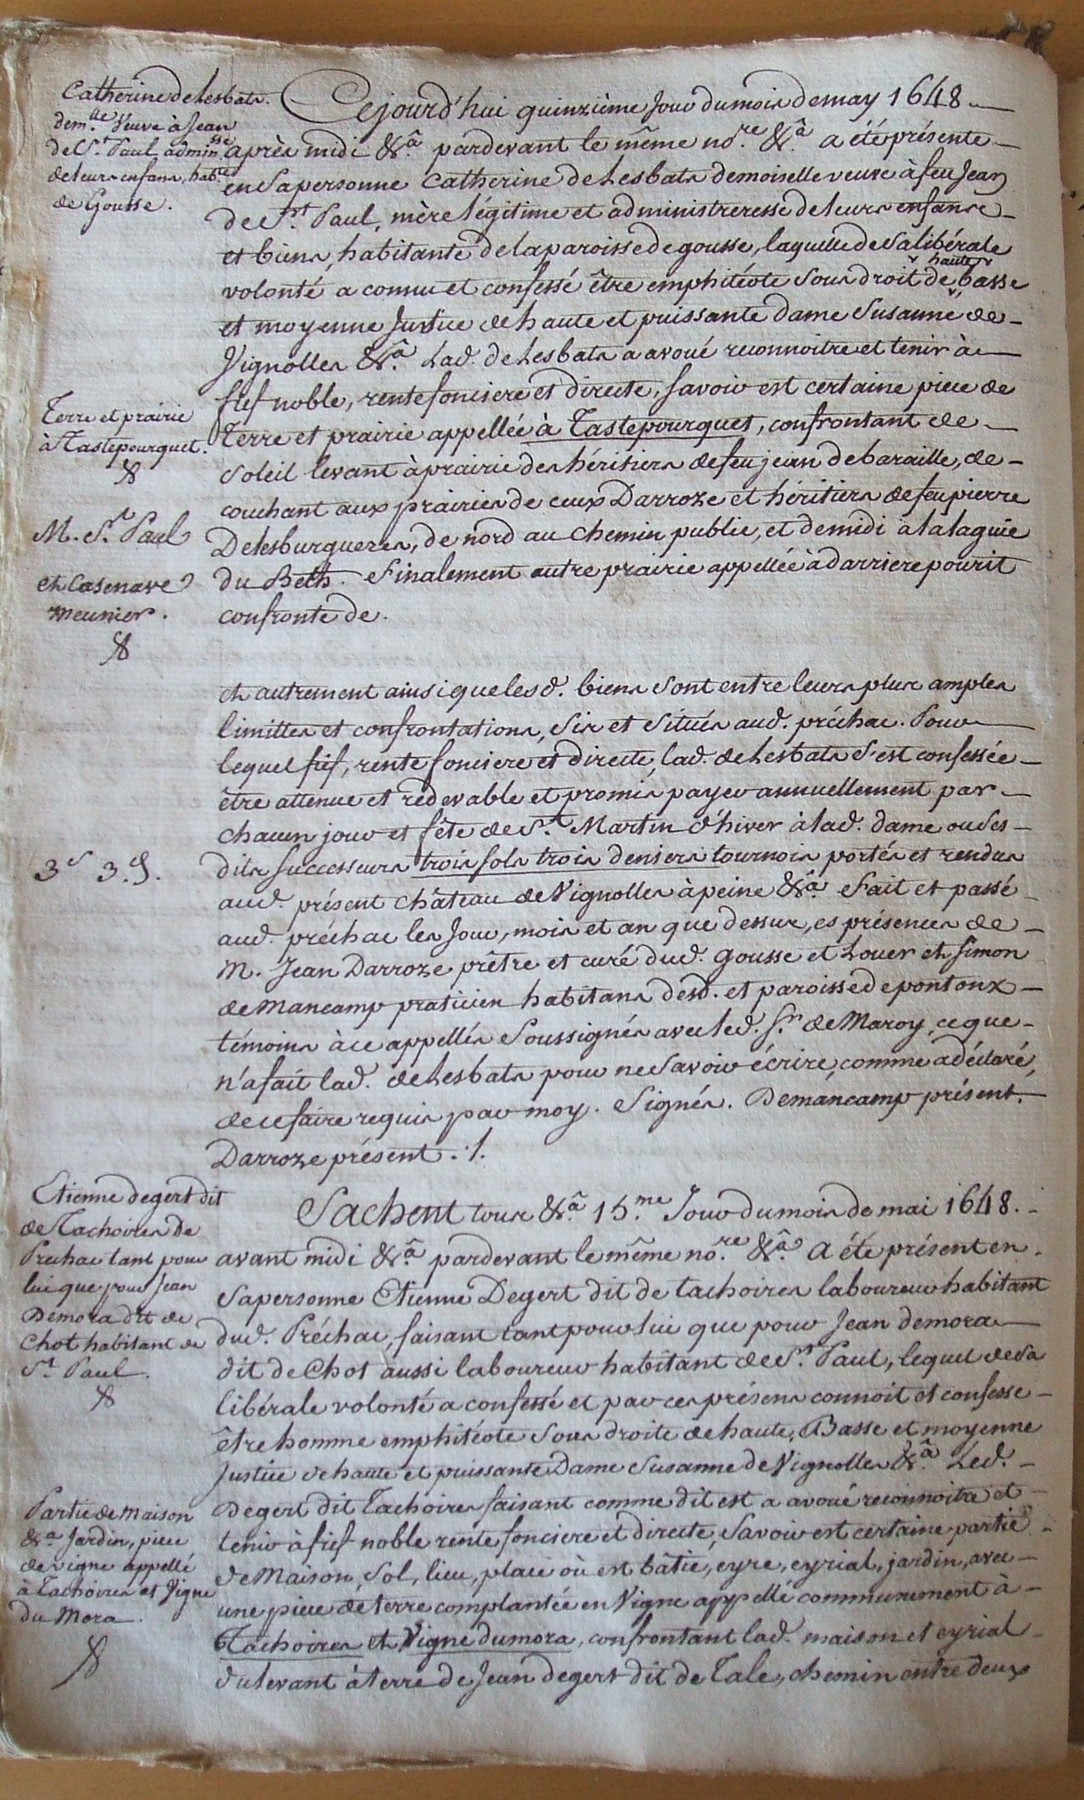 Catherine de Lesbats.
dem.lle Veuve à Jean
de S.t Paul admin.sse
de leurs enfans, hab.te
de Gousse.
Cejourd'hui quinzième Jour du mois de may 1648
après midi &.a pardevant le même no.re &.a a été présente
en Sa personne Catherine de Lesbats demoiselle veuve à feu Jean
de S.t Paul, mère légitime et administreresse de leurs enfans
et biens, habitante de la paroisse de gousse, laquelle de Sa libérale
volonté a connu et confessé être emphitéote Sous droit de haute, basse
et moyenne Justice de haute et puissante dame Susanne de
Vignolles &.a Lad. de Lesbats a avoué reconnoitre et tenir à
fief noble, rente fonciere et directe, Savoir est certaine piece de
Terre et prairie appellée à Tastepourquet, confrontant de
Soleil levant à prairie des héritiers de feu jean de baraille, de
couchant aux prairies de ceux Darroze et héritiers de feu pierre
Delesburgueres, de nord au chemin public, et de midi à la lagüe
du Beth. Finalement autre prairie appellée à darrierepourit
confronte de.
Terre et prairie
à Tastepourquet.
M. S.t Paul
et Casenave
meunier.
et autrement ainsi que lesd. biens Sont entre leurs plus amples
limittes et confrontations, Sis et Situés aud. préchac. Pour
lequel fief, rente fonciere et directe, lad. de Lesbats S'est confessée
être attenue et redevable et promis payer annuellement par
chacun jour et fête de S.t Martin d'hiver à lad. dame ou Ses
dits successeurs trois sols trois deniers tournois portés et rendus
aud. présent château de Vignolles à peine &.a Fait et passé
aud. préchac les Jour, mois et an que dessus, es présences de
M. Jean Darroze prêtre et curé dud. gousse et Louer et Simon
de Mancamp praticien habitans desd. et paroisse de pontonx
témoins à ce appellés Soussignés avec led. S.r de Maroy, ce que
n'a fait lad. de Lesbats pour ne Savoir écrire, comme a déclaré,
de ce faire requis par moy. Signés. Demancamp présent.
Darroze présent ./.
3.s 3.d.
Etienne degert dit
de Tachoires de
Prechac tant pour
lui que pour Jean
Demora dit de
Chot habitant de
S.t Paul.
Sachent tous &.a 15.me Jour du mois de mai 1648.
avant midi &.a pardevant le même no.re &.a a été présent en
Sa personne Etienne Degert dit de tachoires laboureur habitant
dud. Préchac, faisant tant pour lui que pour Jean demora
dit de Chot aussi laboureur habitant de S.t Paul, lequel de Sa
libérale volonté a confessé et par ces présens connoit et confesse
être homme emphitéote Sous droite de haute, Basse et moyenne
Justice de haute et puissante Dame Susanne de Vignolles &.a Led.
Degert dit Tachoires faisant comme dit est a avoué reconnoitre et
tenir à fief noble rente fonciere et directe, Savoir est certaine partie
de Maison, Sol, lieu, place où est bâtie, eyre, eyrial, jardin, avec
une piece de terre complantée en Vigne appellé communement à
Tachoires et Vigne dumora, confrontant lad. maison et eyrial
du levant à terre de Jean degert dit de Tale, chemin entre deux
Partie de Maison
&.a Jardin, piece
de vigne appellé
à Tachoires et Vigne
du Mora.